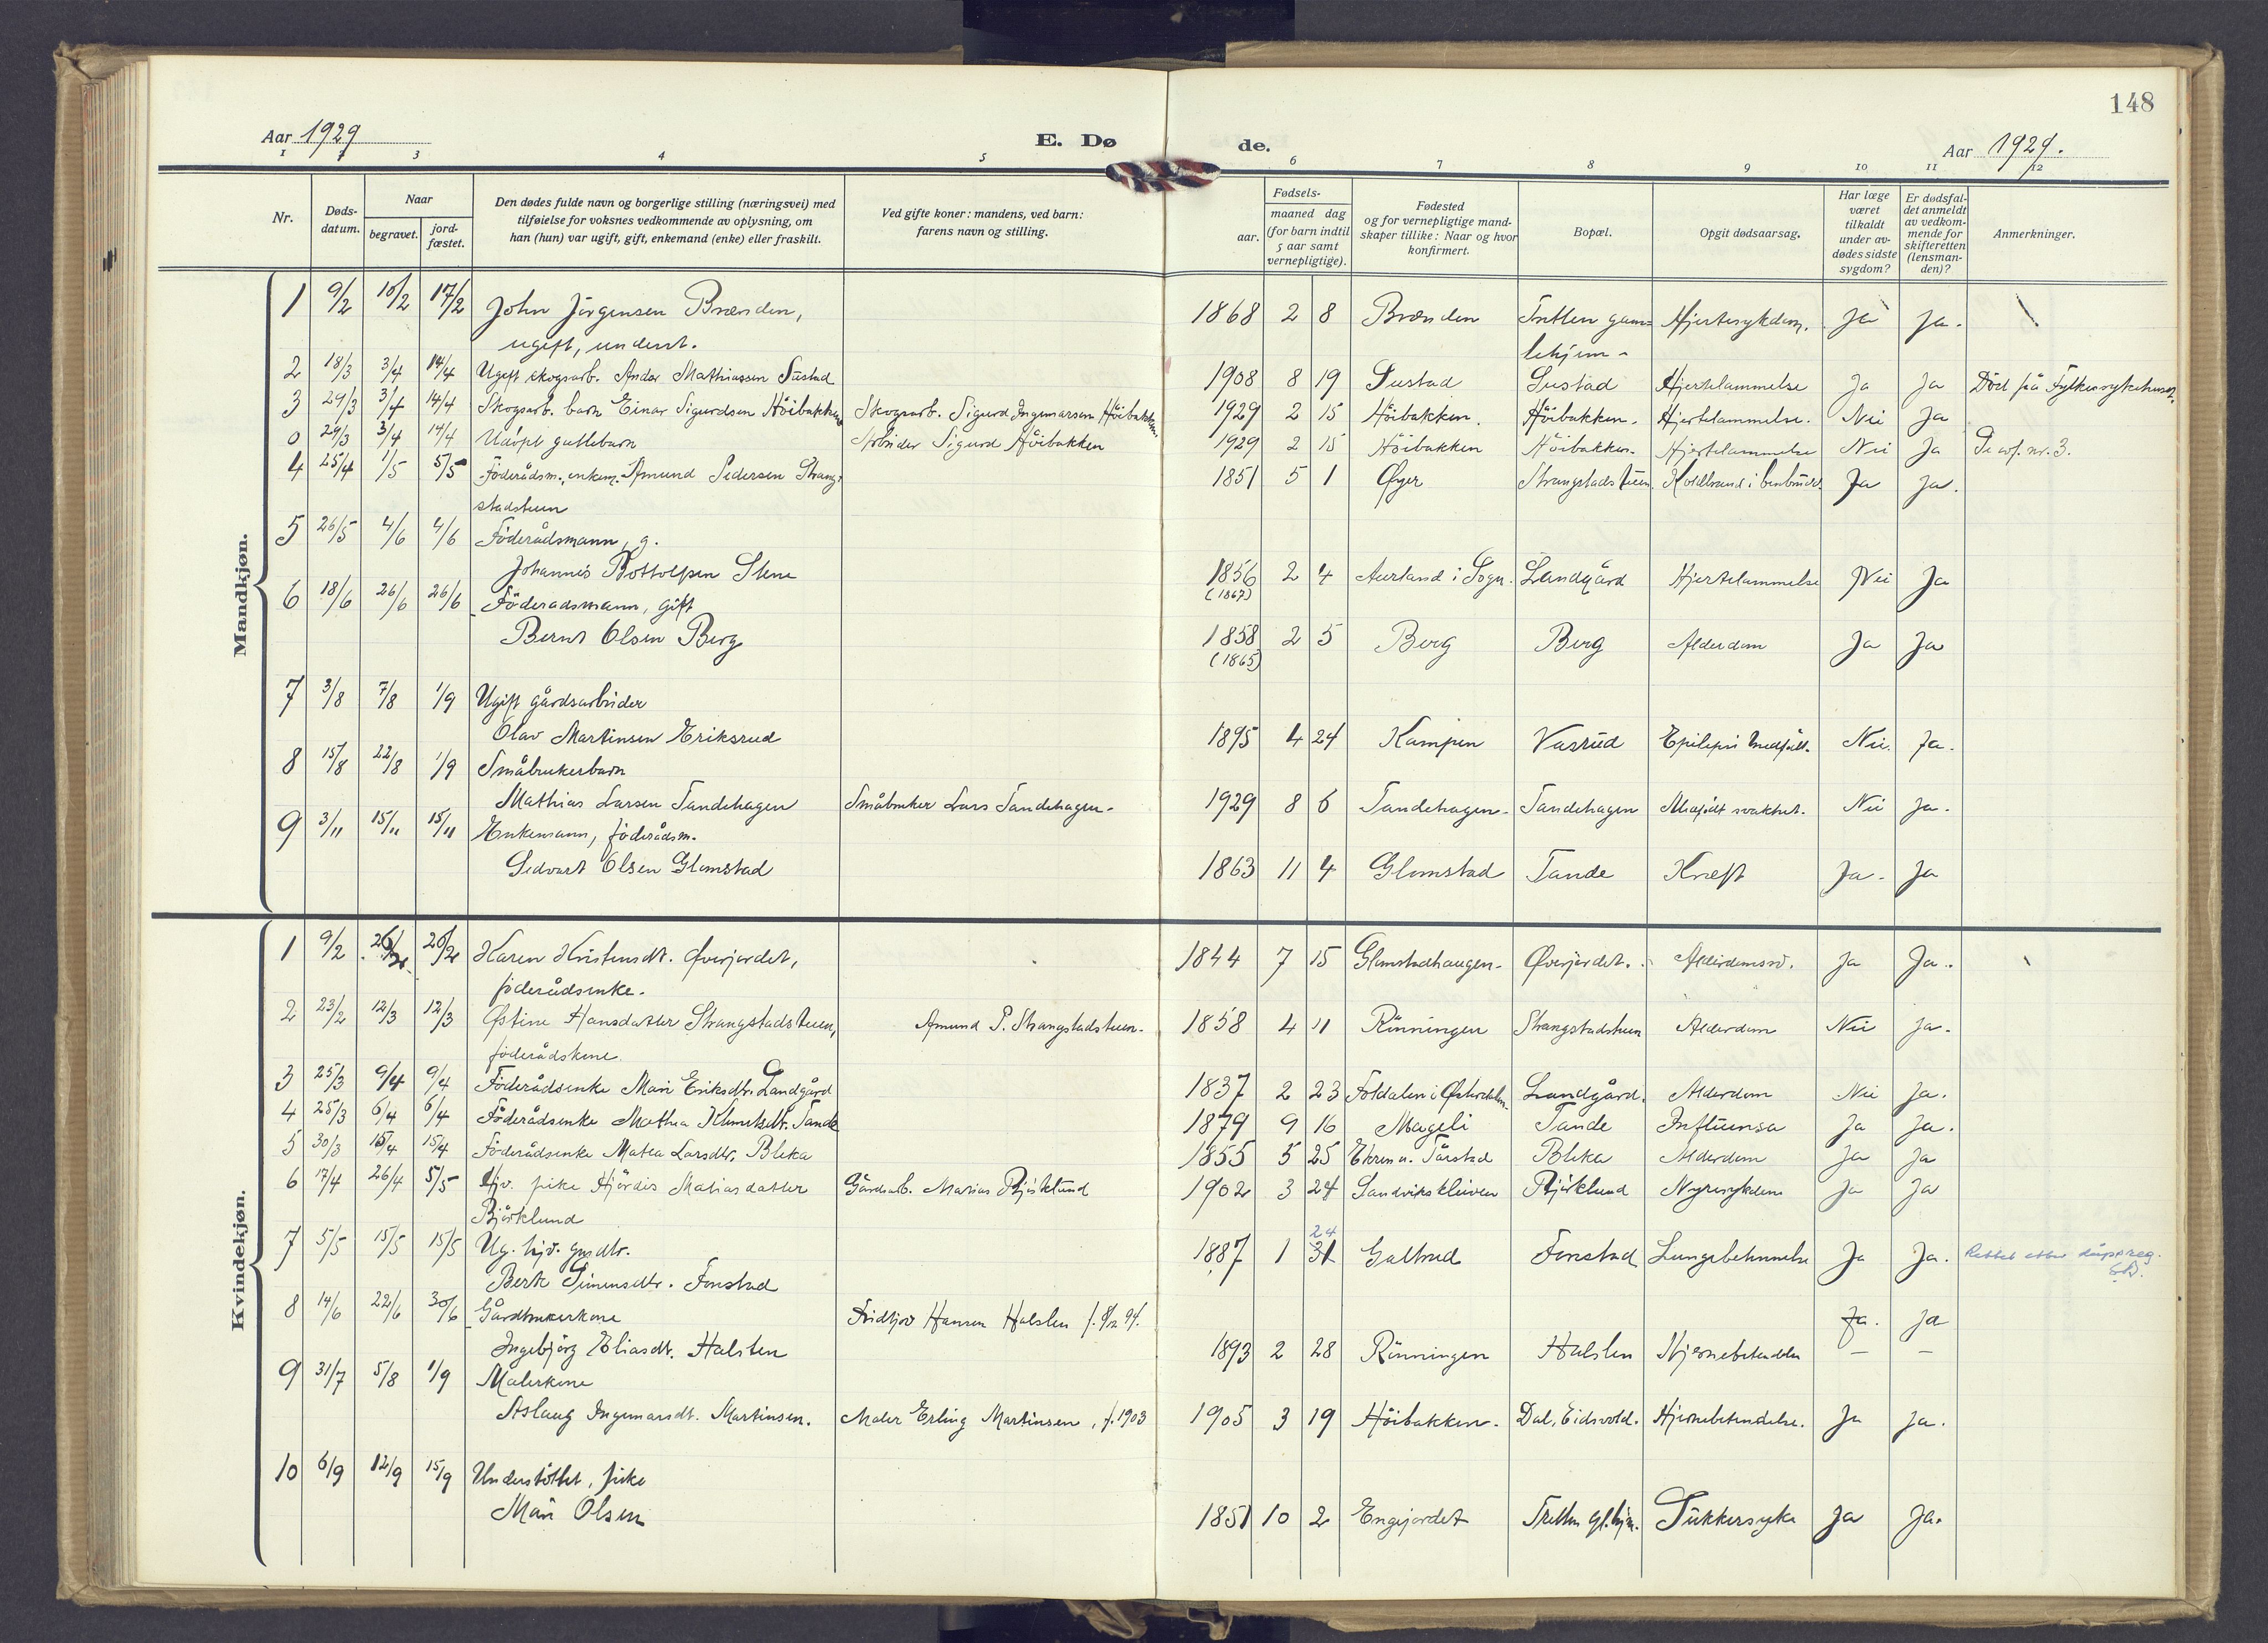 148
Aar 1929
E. Dø
de.
Aar 1929.
1 2 3 4 5 6 7 8 9 10 11 12
Nr.
Døds-
datum.
Naar
begravet.
jord-
fæstet.
Den dødes fulde navn og borgerlige stilling (næringsvei) med
tilføielse for voksnes vedkommende av oplysning, om
han (hun) var ugift, gift, enkemand (enke) eller fraskilt.
Ved gifte koner: mandens, ved barn:
farens navn og stilling.
Fødsels-
aar.
maaned dag
(for barn indtil
5 aar samt
vernepligtige).
Fødested
og for vernepligtige mand-
skaper tillike: Naar og hvor
konfirmert.
Bopæl.
Opgit dødsaarsag.
Har læge
været
tilkaldt
under av-
dødes sidste
sygdom?
Er dødsfal-
det anmeldt
av vedkom-
mende for
skifteretten
(lensman-
den)?
Anmerkninger.
Mandkjøn.
1 9/2 10/2 17/2 John Jörgensen Brænden, 1868 2 8 Brænden Tretten gam- Hjertesykdom. Ja Ja.
ugift, underst. lehjem -
2 18/3 3/4 14/4 Ugift skogsarb. Andor Mathiassen Sustad 1908 8 19 Sustad Sustad Hjertelammelse Ja Ja Död på Fylkessykehuset.
3 29/3 3/4 14/4 Skogsarb. barn Einar Sigurdsen Höibakken Skogsarb. Sigurd Ingemarsen Höibakken. 1929 2 15 Höibakken. Höibakken. Hjertelammelse. Nei Ja
0 29/3 3/4 14/4 Udöpt guttebarn Arbeider Sigurd Höibakken 1929 2 15 Höibakken Höibakken. Hjertelammelse Nei Ja Se nr. 3.
4 25/4 1/5 5/5 Föderådsm., enkem. Amund Pedersen Strang- 1851 5 1 Øyer Strangstadstuen Koldbrand i benbrudd Ja Ja.
stadstuen
5 26/5 4/6 4/6 Föderådsmann, g.
Johannes Bottolfsen Stene 1856 2 4 Aurland i Sogn. Landgård Hjertelammelse Nei Ja
(1867)
6 18/6 26/6 26/6 Föderadsmann, gift
Bernt Olsen Berg 1858 2 5 Berg Berg Alderdom Ja Ja
(1865)
7 3/8 7/8 1/9 Ugift gårdsarbeider
Olav Martinsen Eriksrud 1895 4 24 Kampen Vasrud Epilepsi medfødt. Nei. Ja.
8 15/8 22/8 1/9 Småbrukerbarn
Mathias Larsen Tandehagen Småbruker Lars Tandehagen - 1929 8 6 Tandehagen - Tandehagen Medfödt svakhet. Nei Ja.
9 3/11 15/11 15/11 Enkemann, föderådsm.
Sedvart Olsen Glomstad 1863 11 4 Glomstad Tande Kræft Ja - Ja
Kvindekjøn.
1 9/2 26/2 Karen Kristensdt. Øverjordet, 1844 7 15 Glomstadhaugen - Øverjordet. Alderdomssv. Ja Ja.
föderådsenke.
2 23/2 12/3 12/3 Østine Hansdatter Strangstadstuen, Amund P. Strangstadstuen - 1858 4 11 Rönningen Strangstadstuen Alderdom Nei Ja.
föderådskone.
3 25/3 9/4 9/4 Föderådsenke Mari Eriksdtr. Landgård 1837 2 23 Foldalen i Østerdalen. Landgård. Alderdom Nei Ja.
4 25/3 6/4 6/4 Föderådsenke Mathea Klemetsdtr. Tande 1879 9 16 Mageli Tande Influensa Ja Ja.
5 30/3 15/4 15/4 Föderådsenke Matea Larsdtr. Bleka 1855 5 25 Ekren u. Bleka Alderdom Ja Ja
6 17/4 26/4 5/5 Hjv. pike Hjördis Matiasdatter Gårdsarb. Matias Björklund 1902 3 24 Sandvikskleiven Björklund Nyresykdom Ja Ja
Björklund
7 5/5 15/5 15/5 Ug. hjv. gmdtr. 24
Berte Simensdtr. Fonstad 1887 1 31 Galtrud Fonstad Lungebetennelse Ja Ja. Rettet etter dåpsreg.
8 14/6 22/6 30/6 Gårdbrukerkone Fridtjov Hansen Halsten f. 8/12 94. Ja. Ja
Ingebjörg Eliasdt. Halsten 1893 2 28 Rönningen Halsten Hjernebetendelse — —
9 31/7 5/8 1/9 Malerkone
Aslaug Ingemarsdt. Martinsen. Maler Erling Martinsen, f. 1903 1905 3 19 Höibakken - Dal, Eidsvold. Hjernebetendelse. Ja Ja.
10 6/9 12/9 15/9 Understöttet, pike
Mari Olsen 1851 10 2 Engjordet Tretten gl.hjm. Sukkersyke Ja Ja.